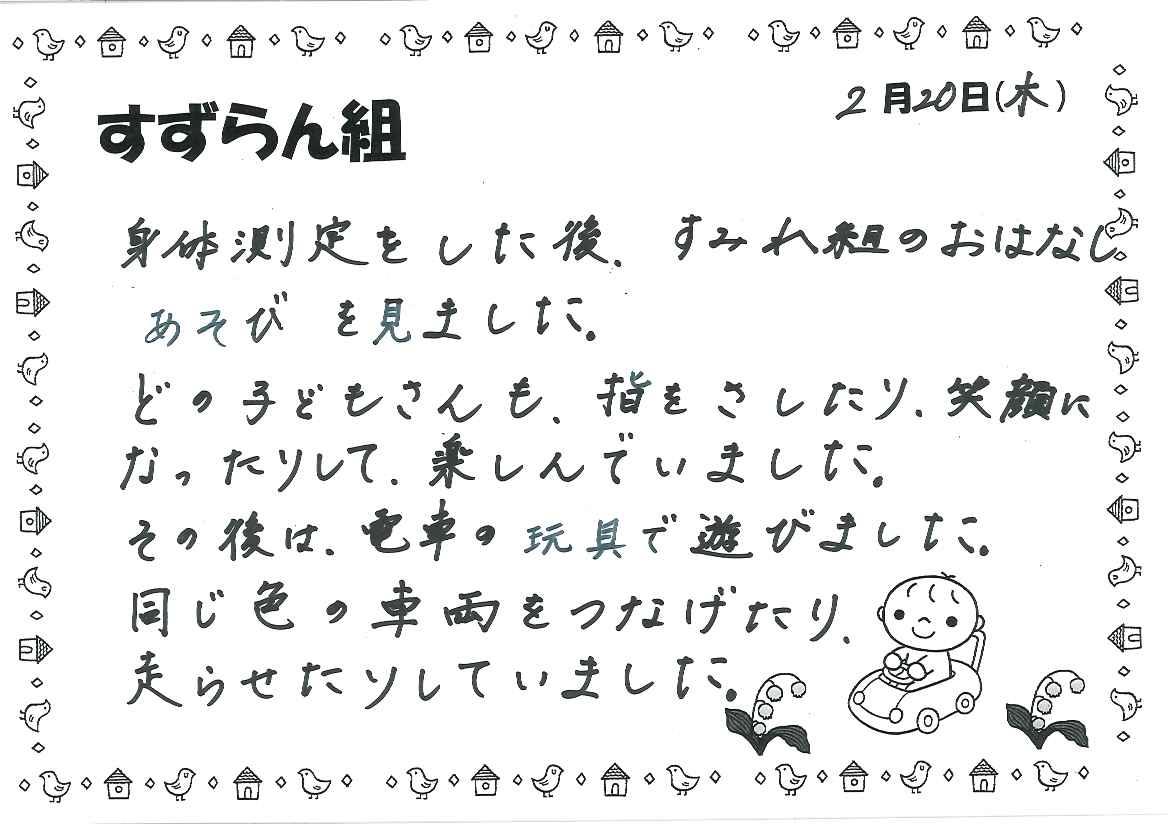 すずらん組
2月20日(木)
身体測定をした後、すみれ組のおはなし
あそびを見ました。
どの子どもさんも、指をさしたり、笑顔に
なったりして、楽しんでいました。
その後は、電車の玩具で遊びました。
同じ色の車両をつなげたり、
走らせたりしていました。